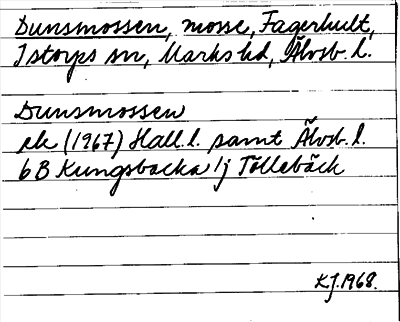 Dunsmossen, mosse, Fagerhult,
Istorps sn, Marks hd, Älvsb. l.
Dunsmossen
ek (1967) Hall. l. samt Älvsb. l.
6B Kungsbacka 1j Töllebäck
KJ. 1968.